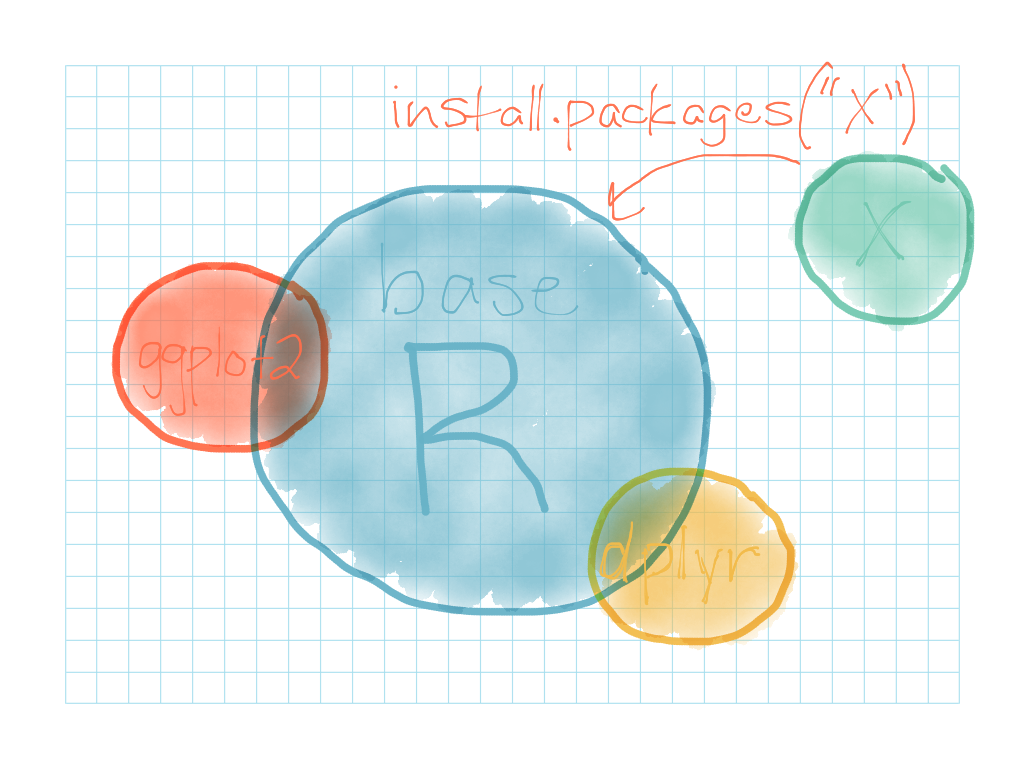 install.packages("X")
X
base
R
ggplot2
dplyr